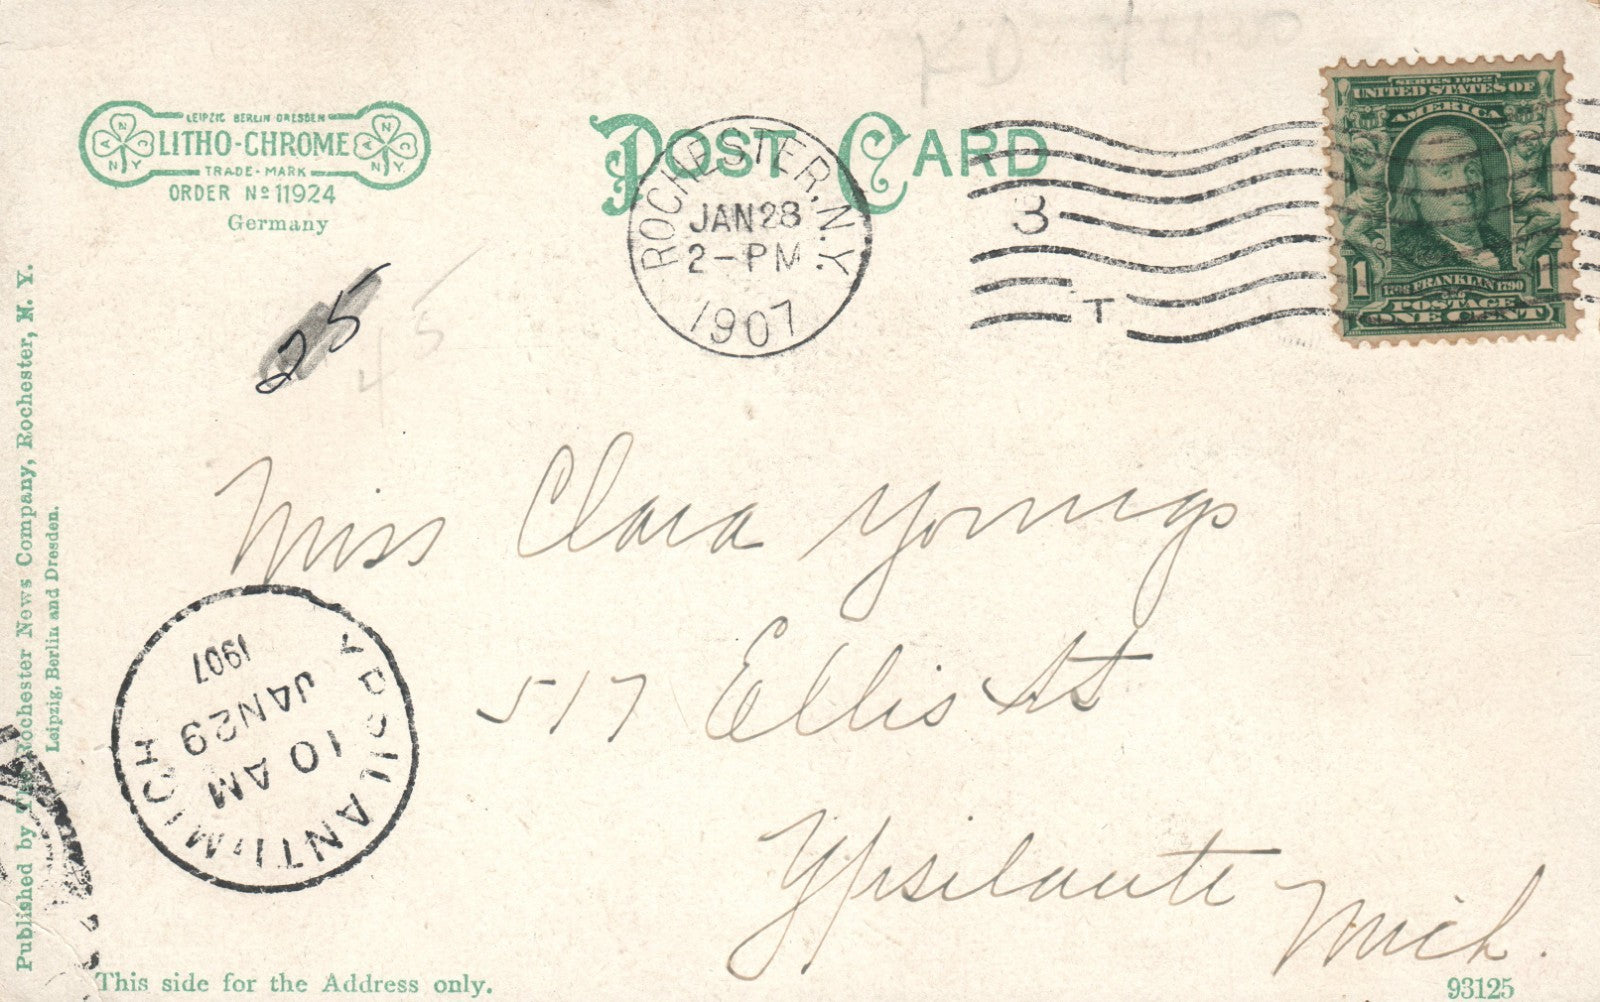 LEIPZIG BERLIN DRESDEN
LITHO-CHROME
TRADE-MARK
ORDER Nº 11924
Germany
POST CARD
ROCHESTER, N.Y.
JAN 28
2-PM
1907
3
T
SERIES 1902
UNITED STATES OF
AMERICA
1706 FRANKLIN 1790
1 1
POSTAGE
ONE CENT
25
45
Miss Clara Youngs
517 Ellis St
Ypsilante Mich.
YPSILANTI, MICH
10 AM
JAN 29
1907
Published by The Rochester News Company, Rochester, N. Y.
Leipzig, Berlin and Dresden.
This side for the Address only.
93125